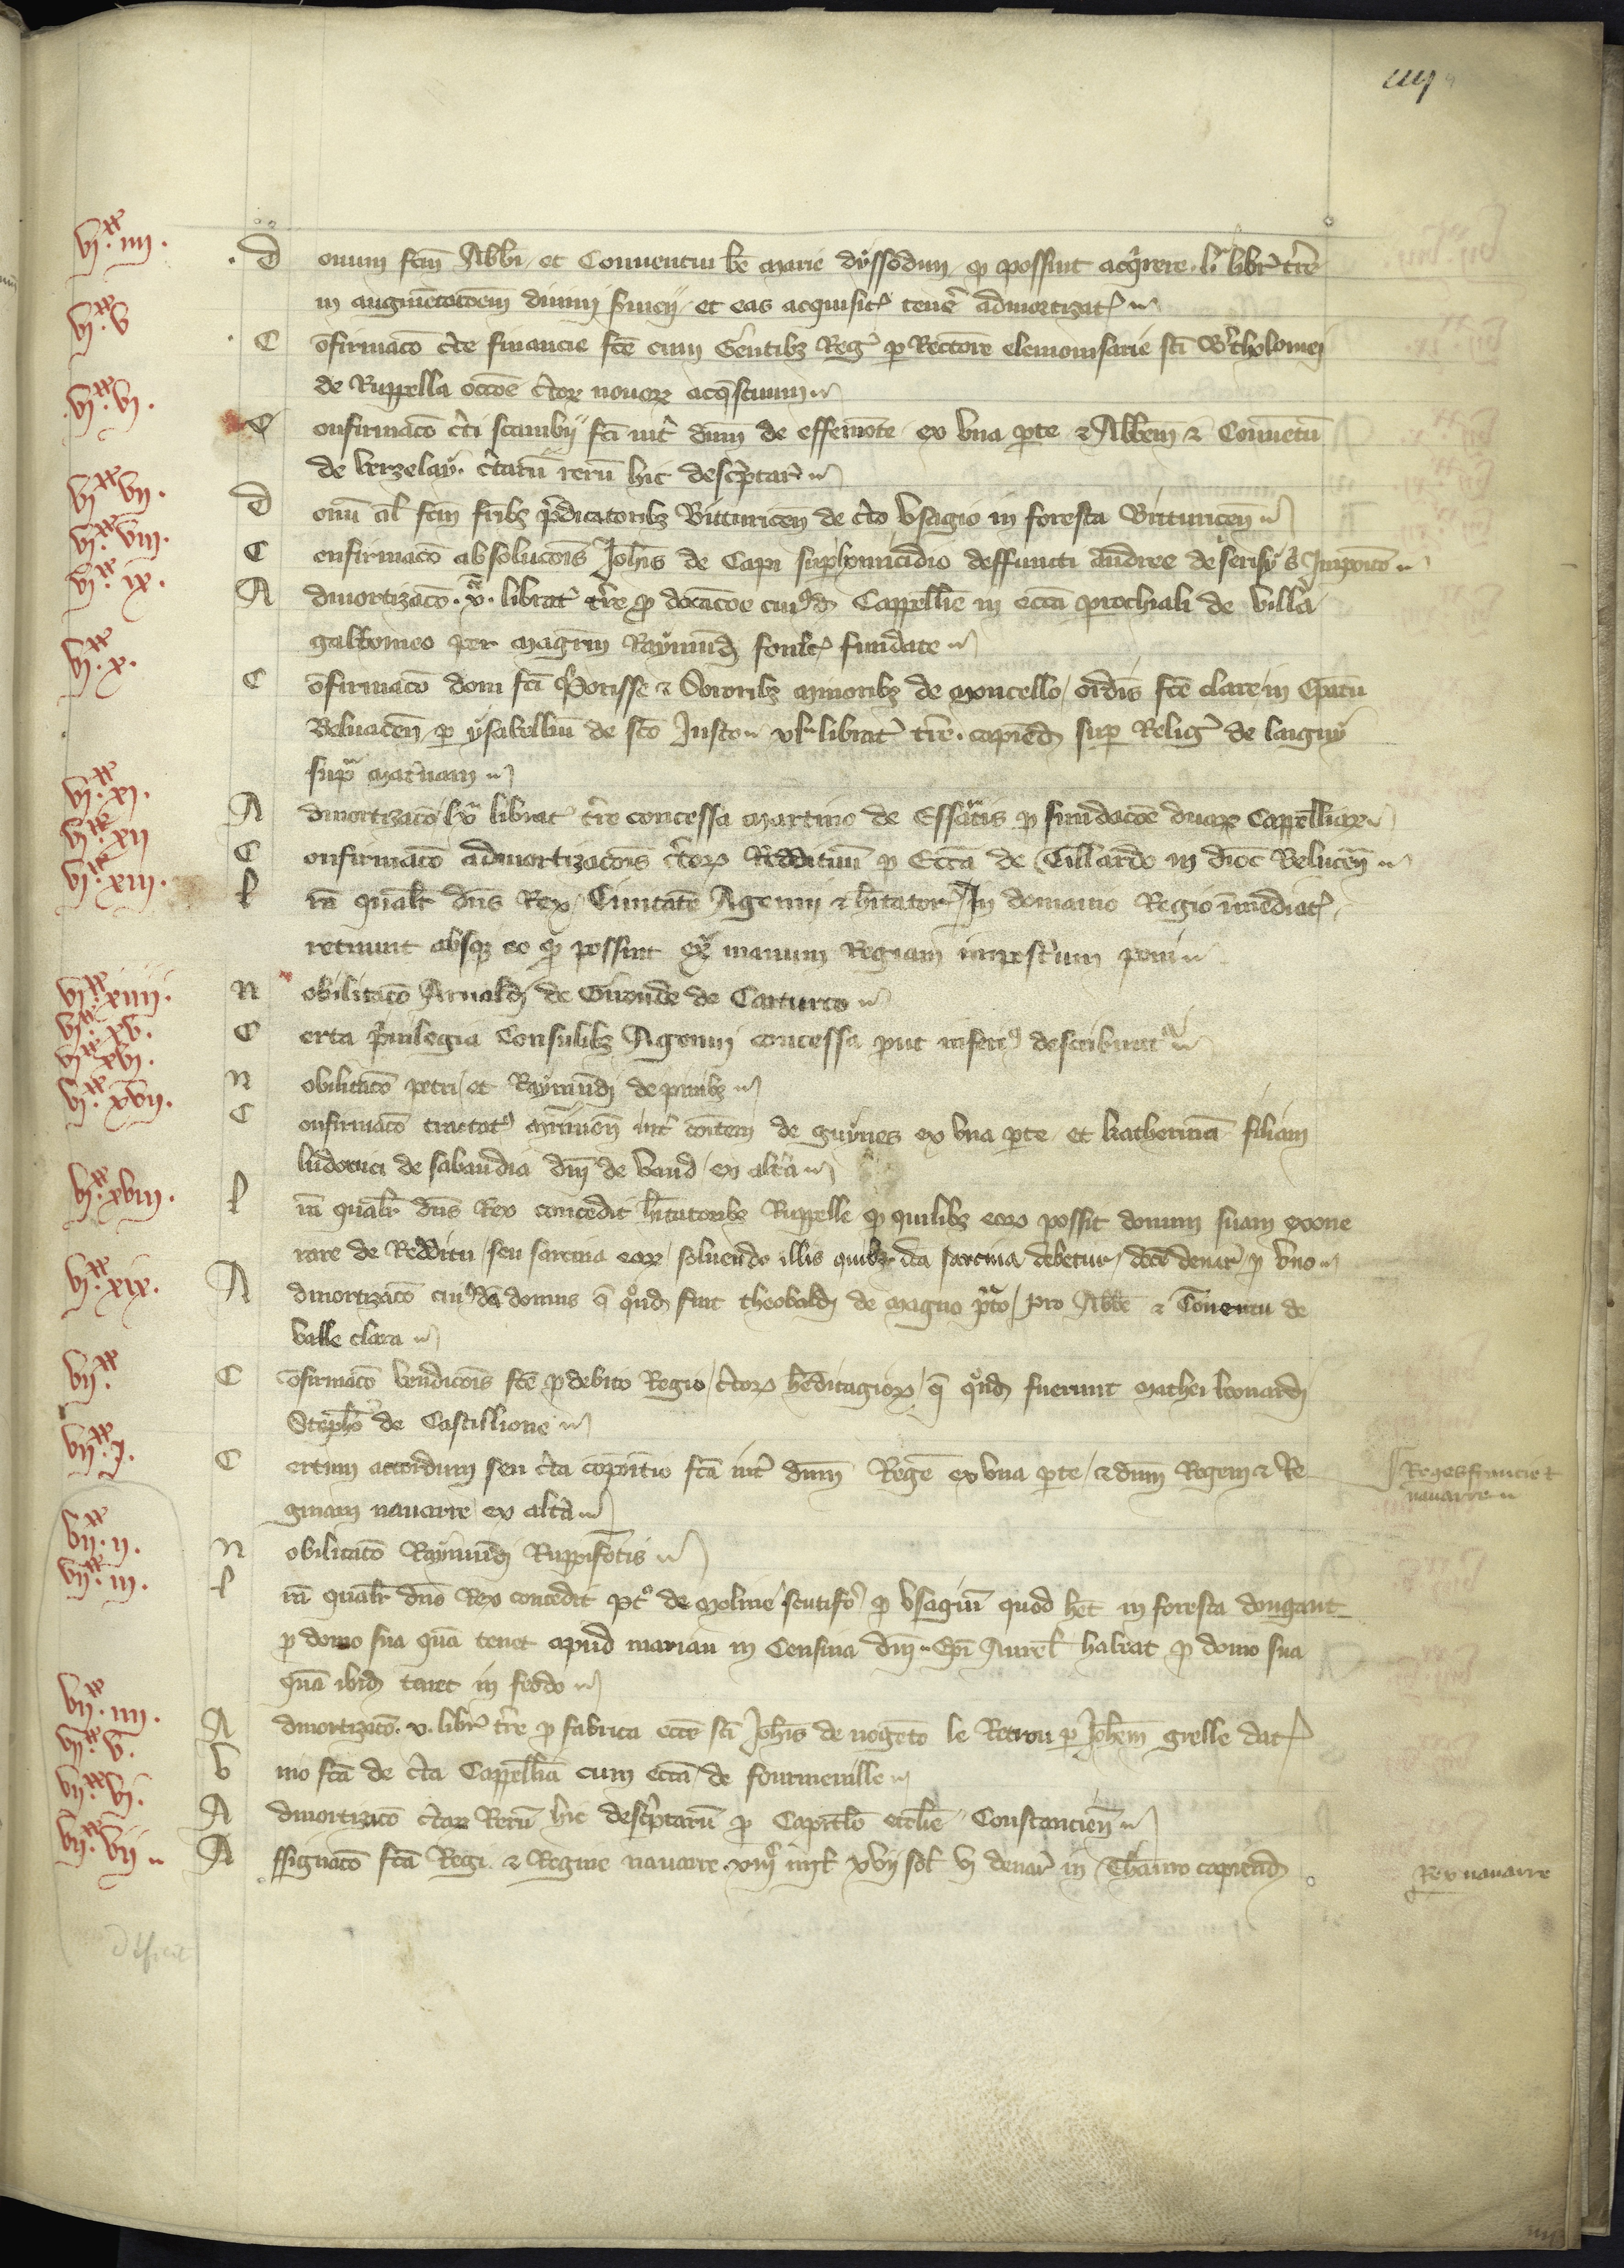 iiij
vi.xx iiii. Donum fcm Abbi et Conventui be Marie dyssodun, qd possint acqrere. li libr tre
in augmetacoem divini svicij, et eas acquisit tener admortizat
vi.xx v Cofirmaco cte financie fce cum Gentibz Reg p Rectore elemonisarie sci Bertholomei
de Ruppella occoe ctor novor acqstuum
vi.xx vi. Confirmaco cti scambij fci int dnm de effemote ex una pte & Abbem & Conuetu
de verzelay. ctaru reru hic desciptar
vi.xx vii. Donu al fcm fribz pdicatoribz Bituricen de cto usagio in foresta Bituricen
vi.xx viii. Confirmaco absolucois Johis de Capi sup homicidio deffuncti Andree de serisy
vi.xx ix. Admortizaco. x. librat tre p dotacoe cuiusd Cappellie in ecca prochiali de villa
galbomeo per Magrm Raymud fundate
vi.xx x. Cofirmaco doni fci Priorisse & Sororibz Minoribz de Moncello, ordis sce clare in Epatu
Belvacen, p ysabellim de sco Justo librat tre. capiend sup Relig de laigny
supra Maternam
vi.xx xi. Admortizaco lx librat tre concessa Martino de Essartis p fundacoe duar Cappelliar
vi.xx xii Confirmaco admortizacois ctor Reddituu p Ecca de Tillardo in dioc Beluacen
vi.xx xiii. lra qualr dns Rex Civitate Agenni & hitator In domanio Regio imediat
retinuit absq eo qd possint ex manum Regiam imposterum poni
vi.xx xiiii. Nobilitaco Arnaldi de Gironde de Caturco
vi.xx xv. Certa privilegia Consulibz Agenni concessa put inferius describunt
vi.xx xvi. Nobilitaco petri, et Raymudi de pinibz
vi.xx xvii. Confirmaco tractat mrimon int comtem de guynes ex una pte et katherina filiam
ludovici de sabaudia dni de vaud, ex altra
vi.xx xviii. lra qualr dns Rex concedit hitatoribz Ruppelle qd quilibz eor possit domum suam exone
rare de Redditu, seu sarcina eor, solvendo illis quibz ita sarcina debetur, dece denar p uno
vi.xx xix. Admortizaco cuiusda domus q quond fuit theobaldi de Magno prato, pro Abbe & Conventu de
valle clara
vii.xx Cofirmaco vendicois fce p debito Regio, ctor heditagior, q quond fuerunt Mathei leonardi
Stepho de Castillione
vii.xx i. Certum accordum seu cta copositio fca int dnm Rege ex una pte, & dnm Regem & Re
ginam navarre, ex altra
Reges francie &
navarre
vii.xx ii. Nobilitaco Raymudi Ruppifotis
vii.xx iii. lra qualr dns Rex concedit Pet de Moline scutifer, qd usagiu quod het in foresta dougant
p domo sua qua tenet apud marian in Censiva dni Epi Aurel habeat p domo sua
qua ibid tenet in feodo
vii.xx iiii. Admortizaco. v. libr tre p fabrica ecce sci Johis de nogeto le Retrou p Johem grelle dat
vii.xx v. Unio fca de cta Cappellia cum ecca de fourmeville
vii.xx vi. Admortizaco ctar Reru hic desciptaru p Capitulo ecclie Constancien
vii.xx vii Assignaco fca Regi. & Regine navarre. mil xvij sol vi denar in Thauro capiend
Rex navarre
deficit
iiij